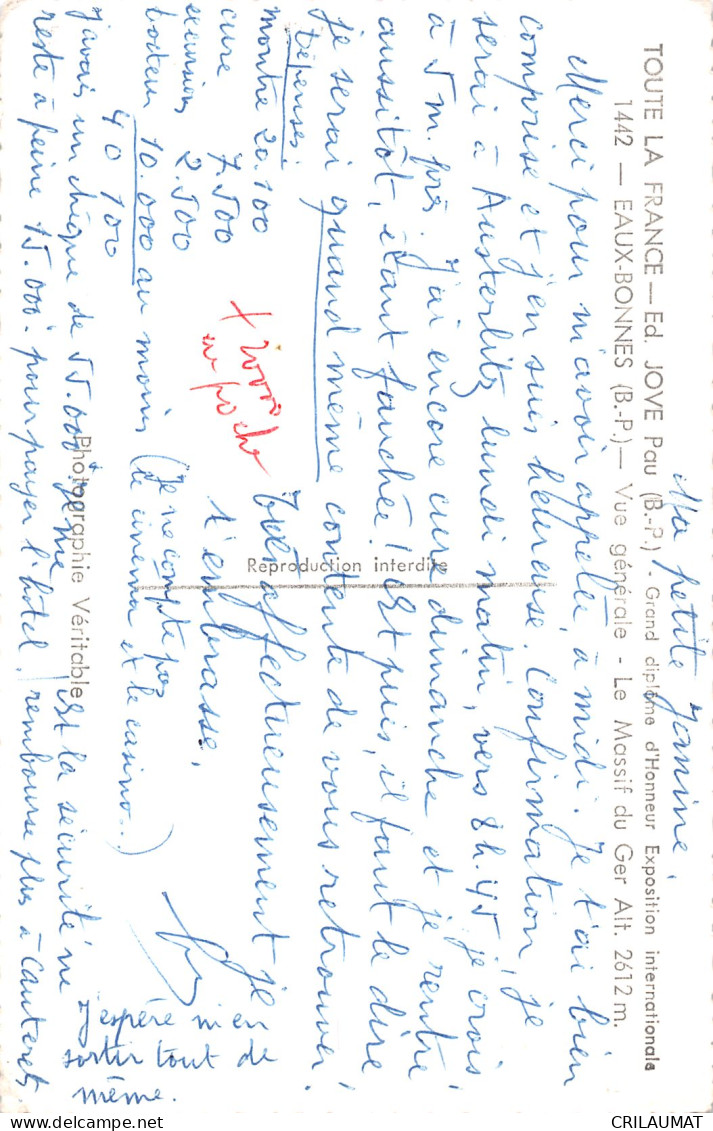 TOUTE LA FRANCE — Ed. JOVE Pau (B.-P.) - Grand diplôme d'Honneur Exposition internationale
1442 — EAUX-BONNES (B.-P.) — Vue générale - Le Massif du Ger Alt. 2612 m.
Ma petite Janine,
Merci pour m'avoir appelée à midi. Je t'ai bien
comprise et j'en suis heureuse. Confirmation, je
serai à Austerlitz lundi matin, vers 8h.45 je crois
à 5 m. près. J'ai encore cure dimanche et je rentre
aussitôt, étant fauchée ! Et puis, il faut le dire
je serai quand même contente de vous retrouver !
Bien affectueusement je
t'embrasse,
Dépenses :
montre 20.100
cure 7.500
excursions 2.500
docteur 10.000 au moins (Je ne compte pas
le cinéma et le casino..)
40 100
+
en poche
J'avais un chèque de 55.000 Et la sécurité ne
reste à peine 15.000. pour payer l'hôtel, rembourse plus à Cauterets
J'espère m'en
sortir tout de
même.
Reproduction interdite
Photographie Véritable
CRILAUMAT